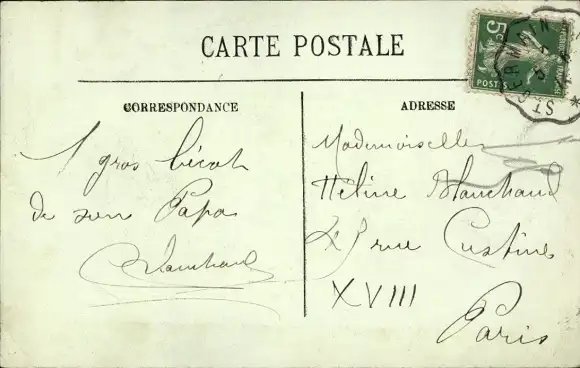 CARTE POSTALE
CORRESPONDANCE
1 gros bécot
de son Papa
Blanchard
ADRESSE
Mademoiselle
Héline Blanchard
rue Custine
XVIII
Paris
5c
POSTES
ST GERMAIN